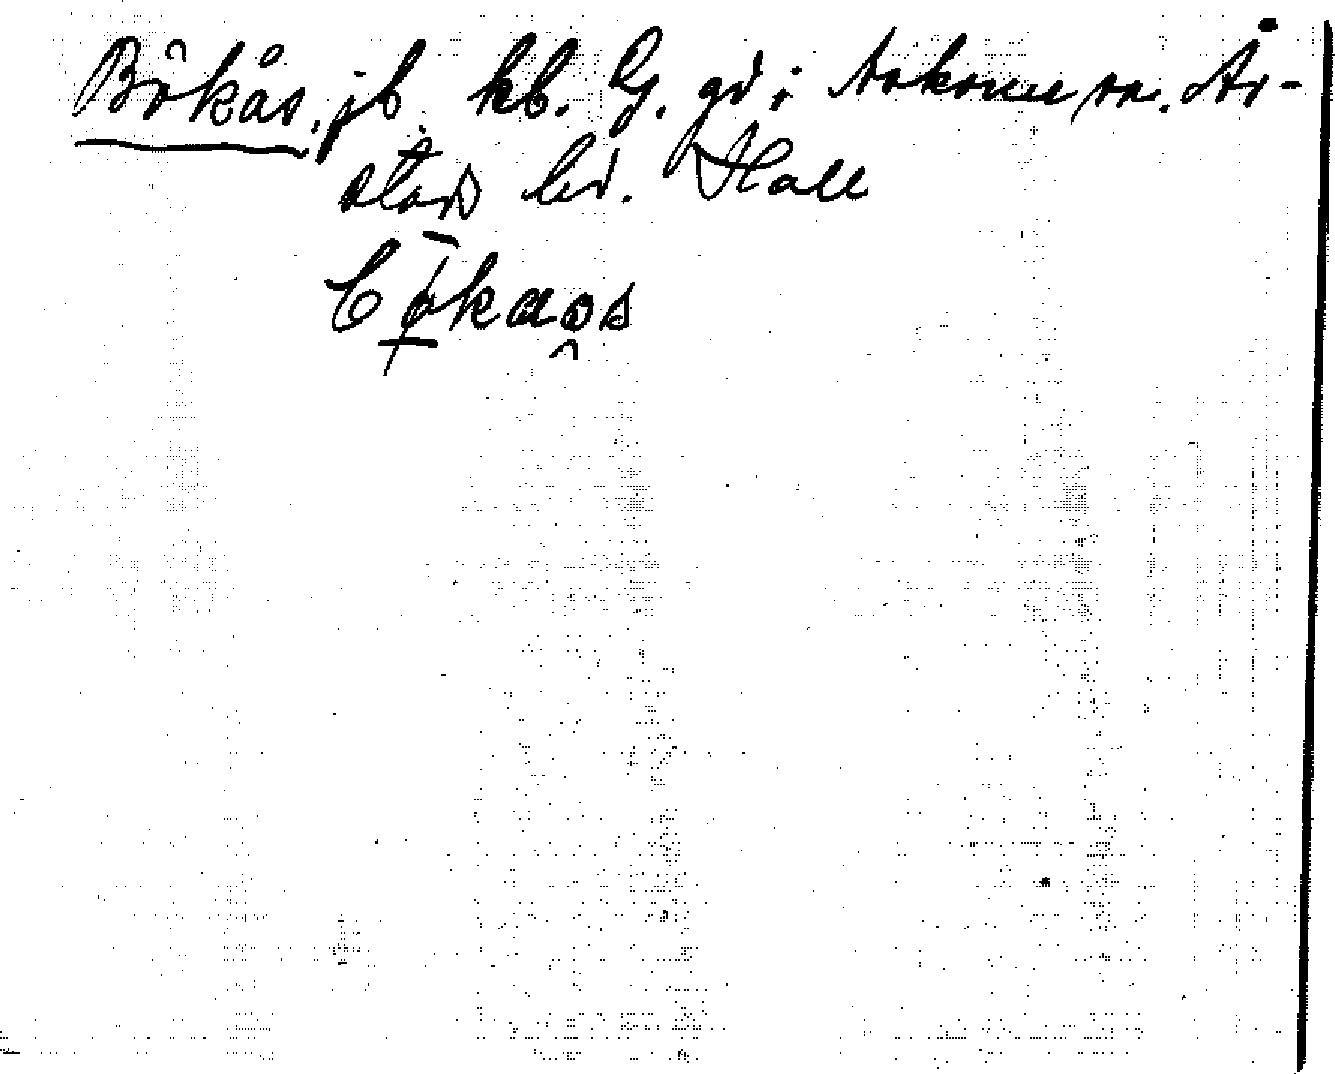 Bökås, jb. kb. G. gd i Askome sn. År-
stads hd. Hall
bøkaos